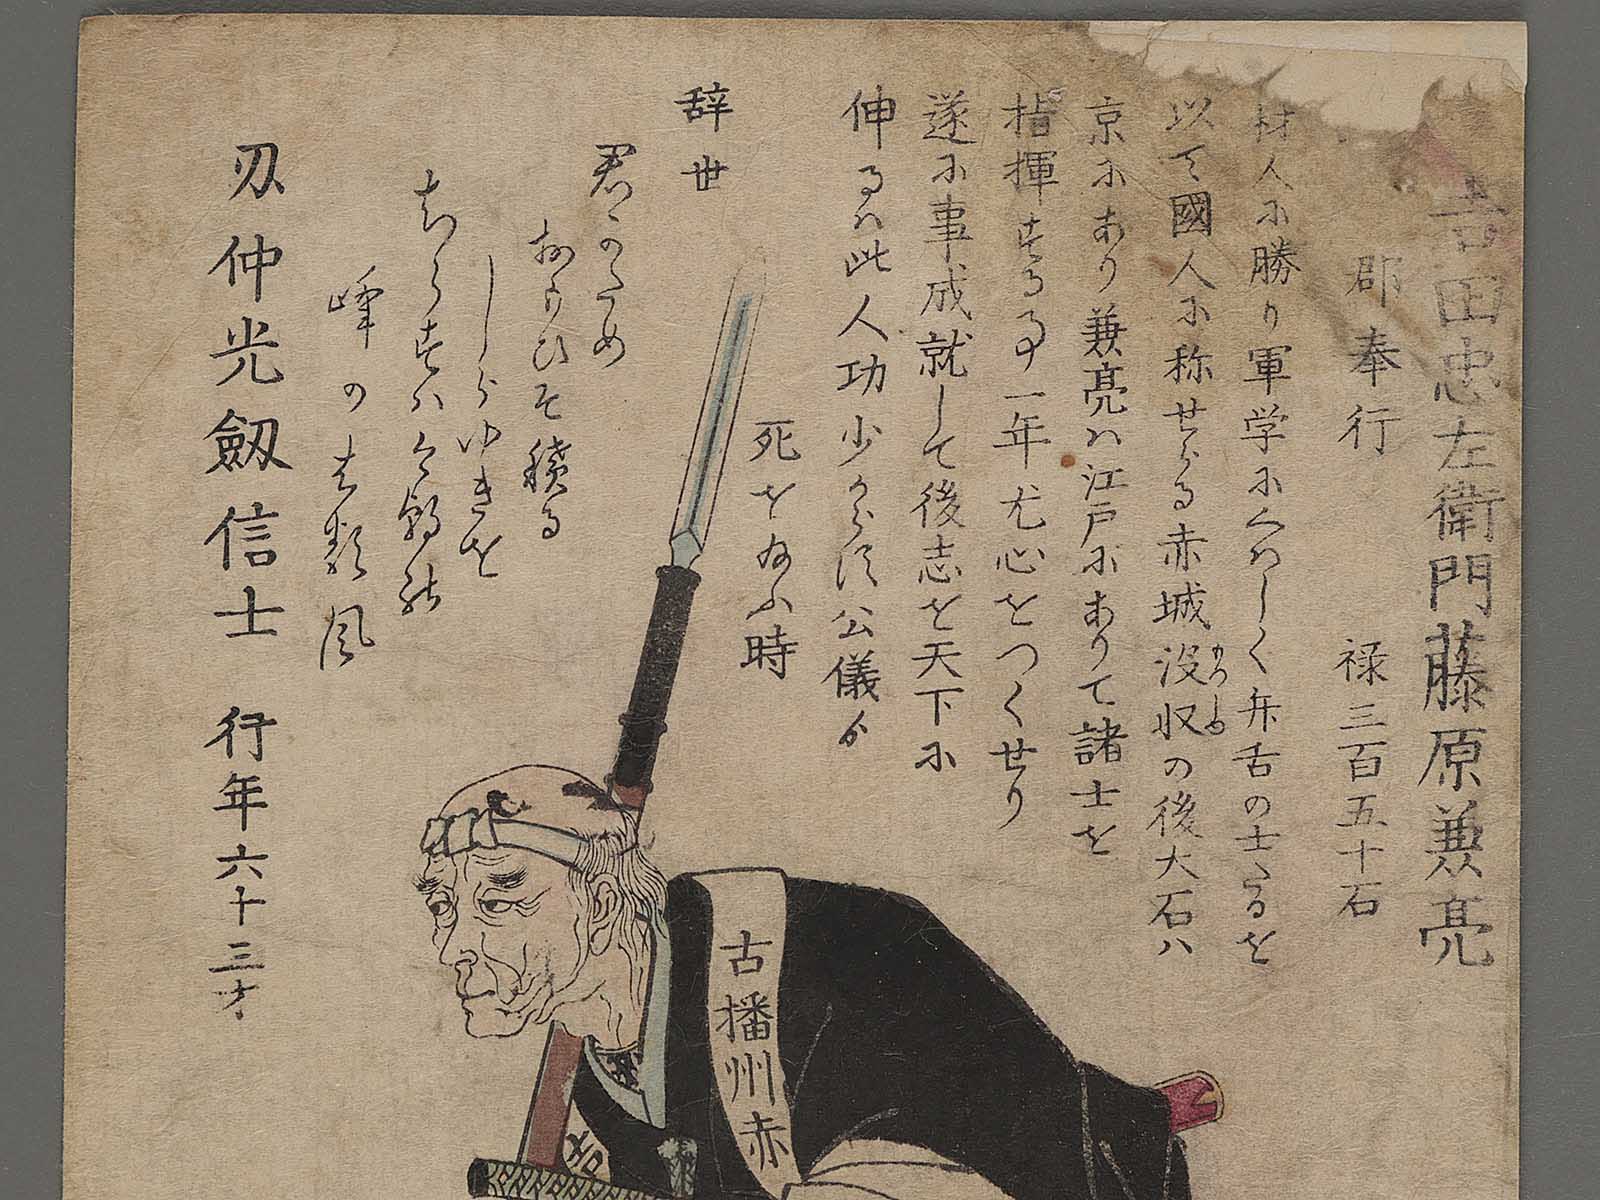 吉田忠左衛門藤原兼亮
郡奉行　禄三百五十石
材人に勝り軍学にくはしく弁舌の士たるを
以て國人に称せらる赤城没収の後大石ハ
京にあり兼亮ハ江戸にありて諸士を
指揮する事一年尤心をつくせり
遂に事成就して後志を天下に
伸るハ此人功少からず公儀より
死を給ふ時
辞世
君がため
おもひそ積る
しらゆきを
ちらすハけさの
峰のはる風
刃仲光劔信士　行年六十三才
古播州赤